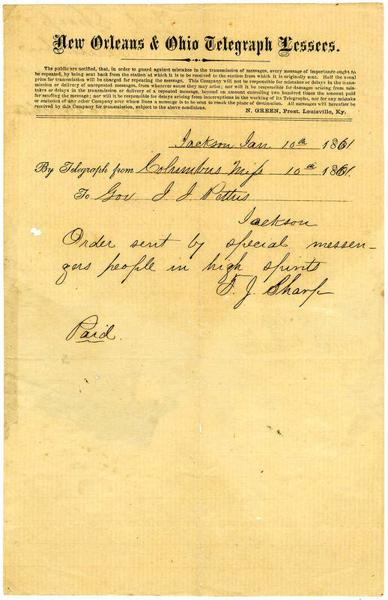 New Orleans & Ohio Telegraph Lessees.
The public are notified, that, in order to guard against mistakes in the transmission of messages, every message of importance ought to
be repeated, by being sent back from the station at which it is to be received to the station from which it is originally sent. Half the usual
price for transmission will be charged for repeating the message. This Company will not be responsible for mistakes or delays in the trans-
mission or delivery of unrepeated messages, from whatever cause they may arise; nor will it be responsible for damages arising from mis-
takes or delays in the transmission or delivery of a repeated message, beyond an amount exceeding two hundred times the amount paid
for sending the message; nor will it be responsible for delays arising from interruptions in the working of its Telegraphs, nor for any mistake
or omission of any other Company over whose lines a message is to be sent to reach the place of destination. All messages will hereafter be
received by this Company for transmission, subject to the above conditions.
N. GREEN, Prest. Louisville, Ky.
Jackson Jan 10th 1861
By Telegraph from Columbus Miss 10th 1861
To Gov J. J. Pettus
Jackson
Order sent by special messen-
gers people in high spirits
T. J. Sharp
Paid.